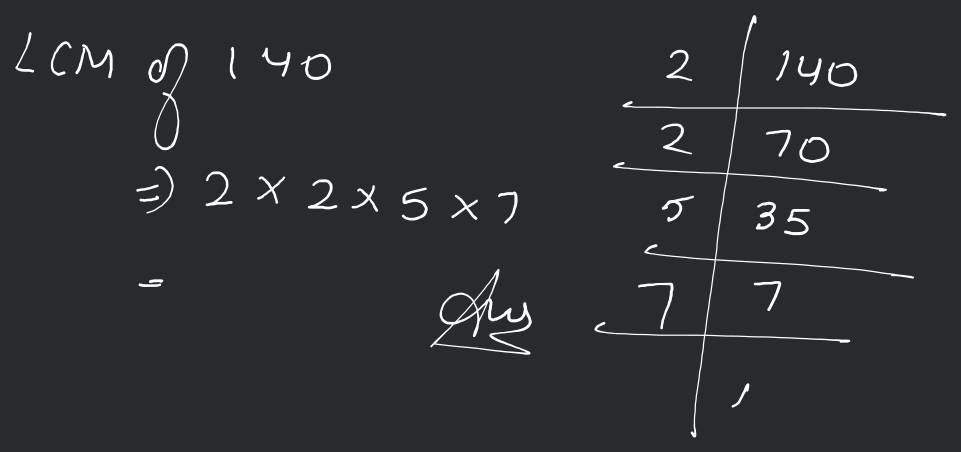 LCM of 140
⇒ 2 × 2 × 5 × 7
=
Ans
2 | 140
2 | 70
5 | 35
7 | 7
1